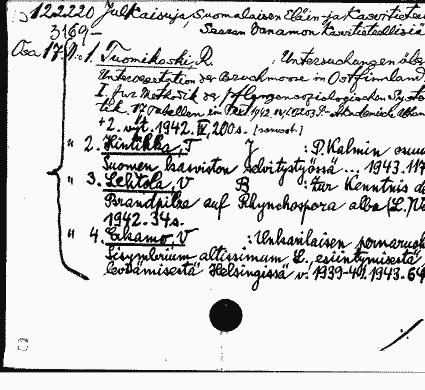 12.2.220 Julkaisuja, Suomalaisen Eläin ja Kasvitietee
3169- Seuran Vanamon Kasvitieteellisiä
Osa 17. N:o 1. Tuomikoski, R. : Untersuchungen übe
Untervegetation der Bruchmoore in Ostfinnland
I. Zur Methodik der pflanzensoziologischen Syste
tik.
+ 2.väit. 1942. IV, 200 s.
" 2. Hintikka, T J : P. Kalmin osuu
Suomen kasviston selvitystyössä ... 1943. 117
" 3. Lehtola, V B : Zur Kenntnis de
Brandpilze auf Rhynchospora alba (L.) Va
1942. 34 s.
" 4. Erkamo, V : Unkarilaisen pernaruoh
Sisymbrium altissimum L., esiintymisestä
leviämisestä Helsingissä v. 1939-41. 1943. 64